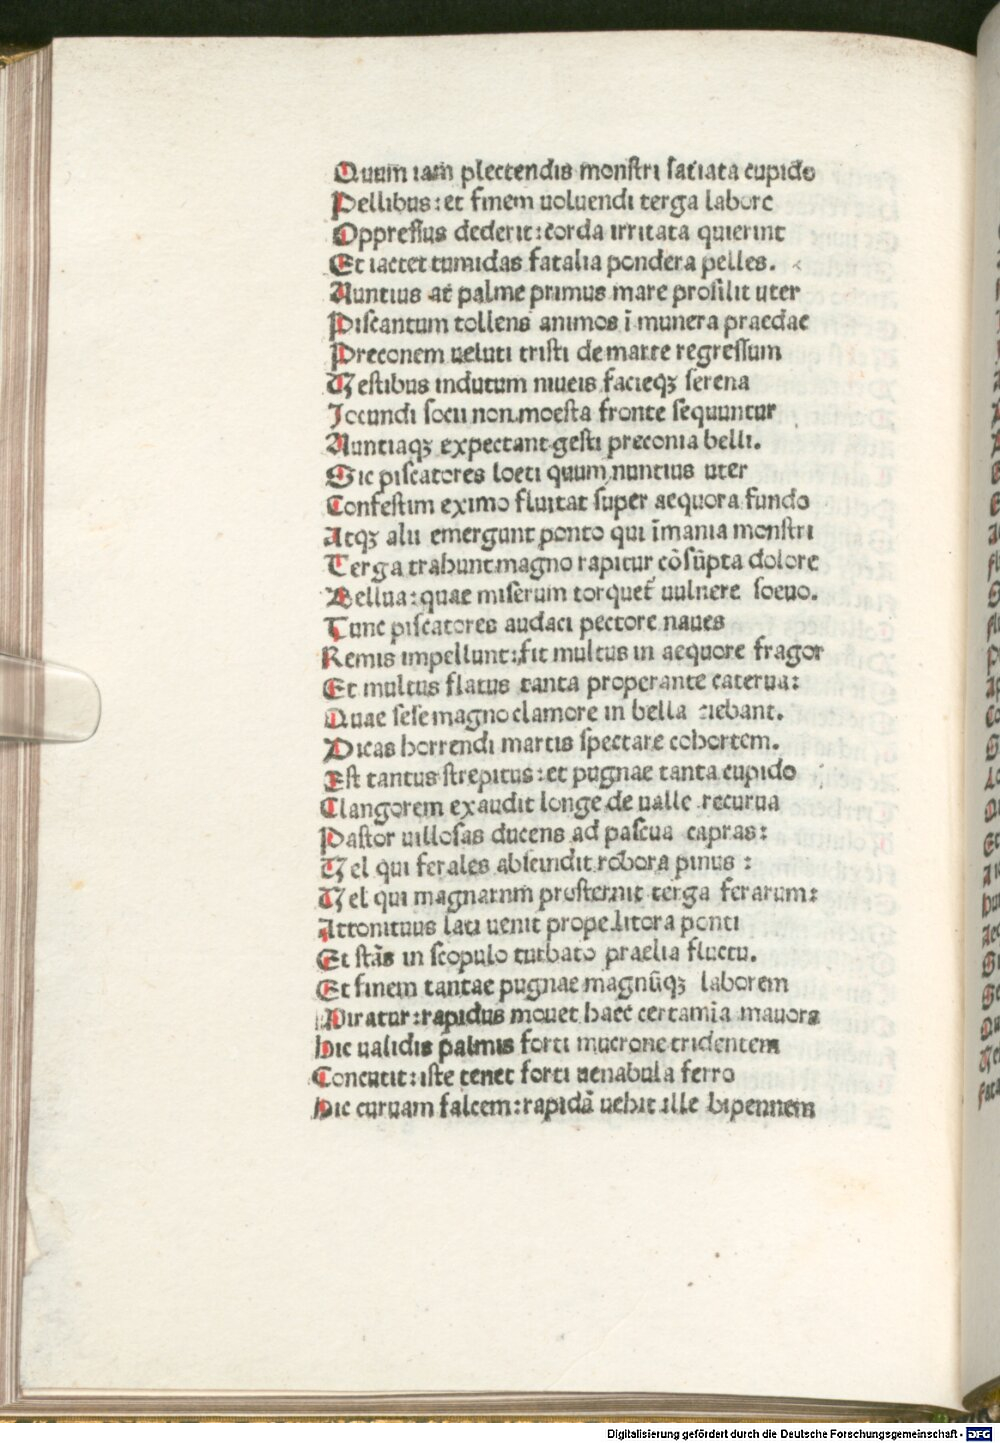 Quum iam plectendis monſtri ſatiata cupido
Pellibus: et finem uoluendi terga labore
Oppreſſus dederit: corda irritata quierint
Et iactet tumidas fatalia pondera pelles.
Nuntius at palme primus mare proſilit uter
Piſcantum tollens animos ī munera praedae
Preconem ueluti triſti de marte regreſſum
Veſtibus indutum niueis facieqꝫ ſerena
Iocundi ſocii non moeſta fronte ſequuntur
Nuntiaqꝫ expectant geſti preconia belli.
Sic piſcatores loeti quum nuntius uter
Confeſtim eximo fluitat ſuper aequora fundo
Atqꝫ alii emergunt ponto qui īmania monſtri
Terga trahunt magno rapitur cōſūpta dolore
Bellua: quae miſerum torquet uulnere ſoeuo.
Tunc piſcatores audaci pectore naues
Remis impellunt: fit multus in aequore fragor
Et multus flatus tanta properante caterua:
Quae ſeſe magno clamore in bella ciebant.
Dicas horrendi martis ſpectare cohortem.
Eſt tantus ſtrepitus: et pugnae tanta cupido
Clangorem exaudit longe de ualle recurua
Paſtor uilloſas ducens ad paſcua capras:
Vel qui ferales abſcindit robora pinus:
Vel qui magnarum proſternit terga ferarum:
Attonituus lati uenit prope litora ponti
Et ſtās in ſcopulo turbato praelia fluctu.
Et finem tantae pugnae magnūqꝫ laborem
Miratur: rapidus mouet haec certamia mauors
Hic ualidis palmis forti mucrone tridentem
Concutit: iſte tenet forti uenabula ferro
Hic curuam falcem: rapidā uehit ille bipennem
Digitalisierung gefördert durch die Deutsche Forschungsgemeinschaft - DFG